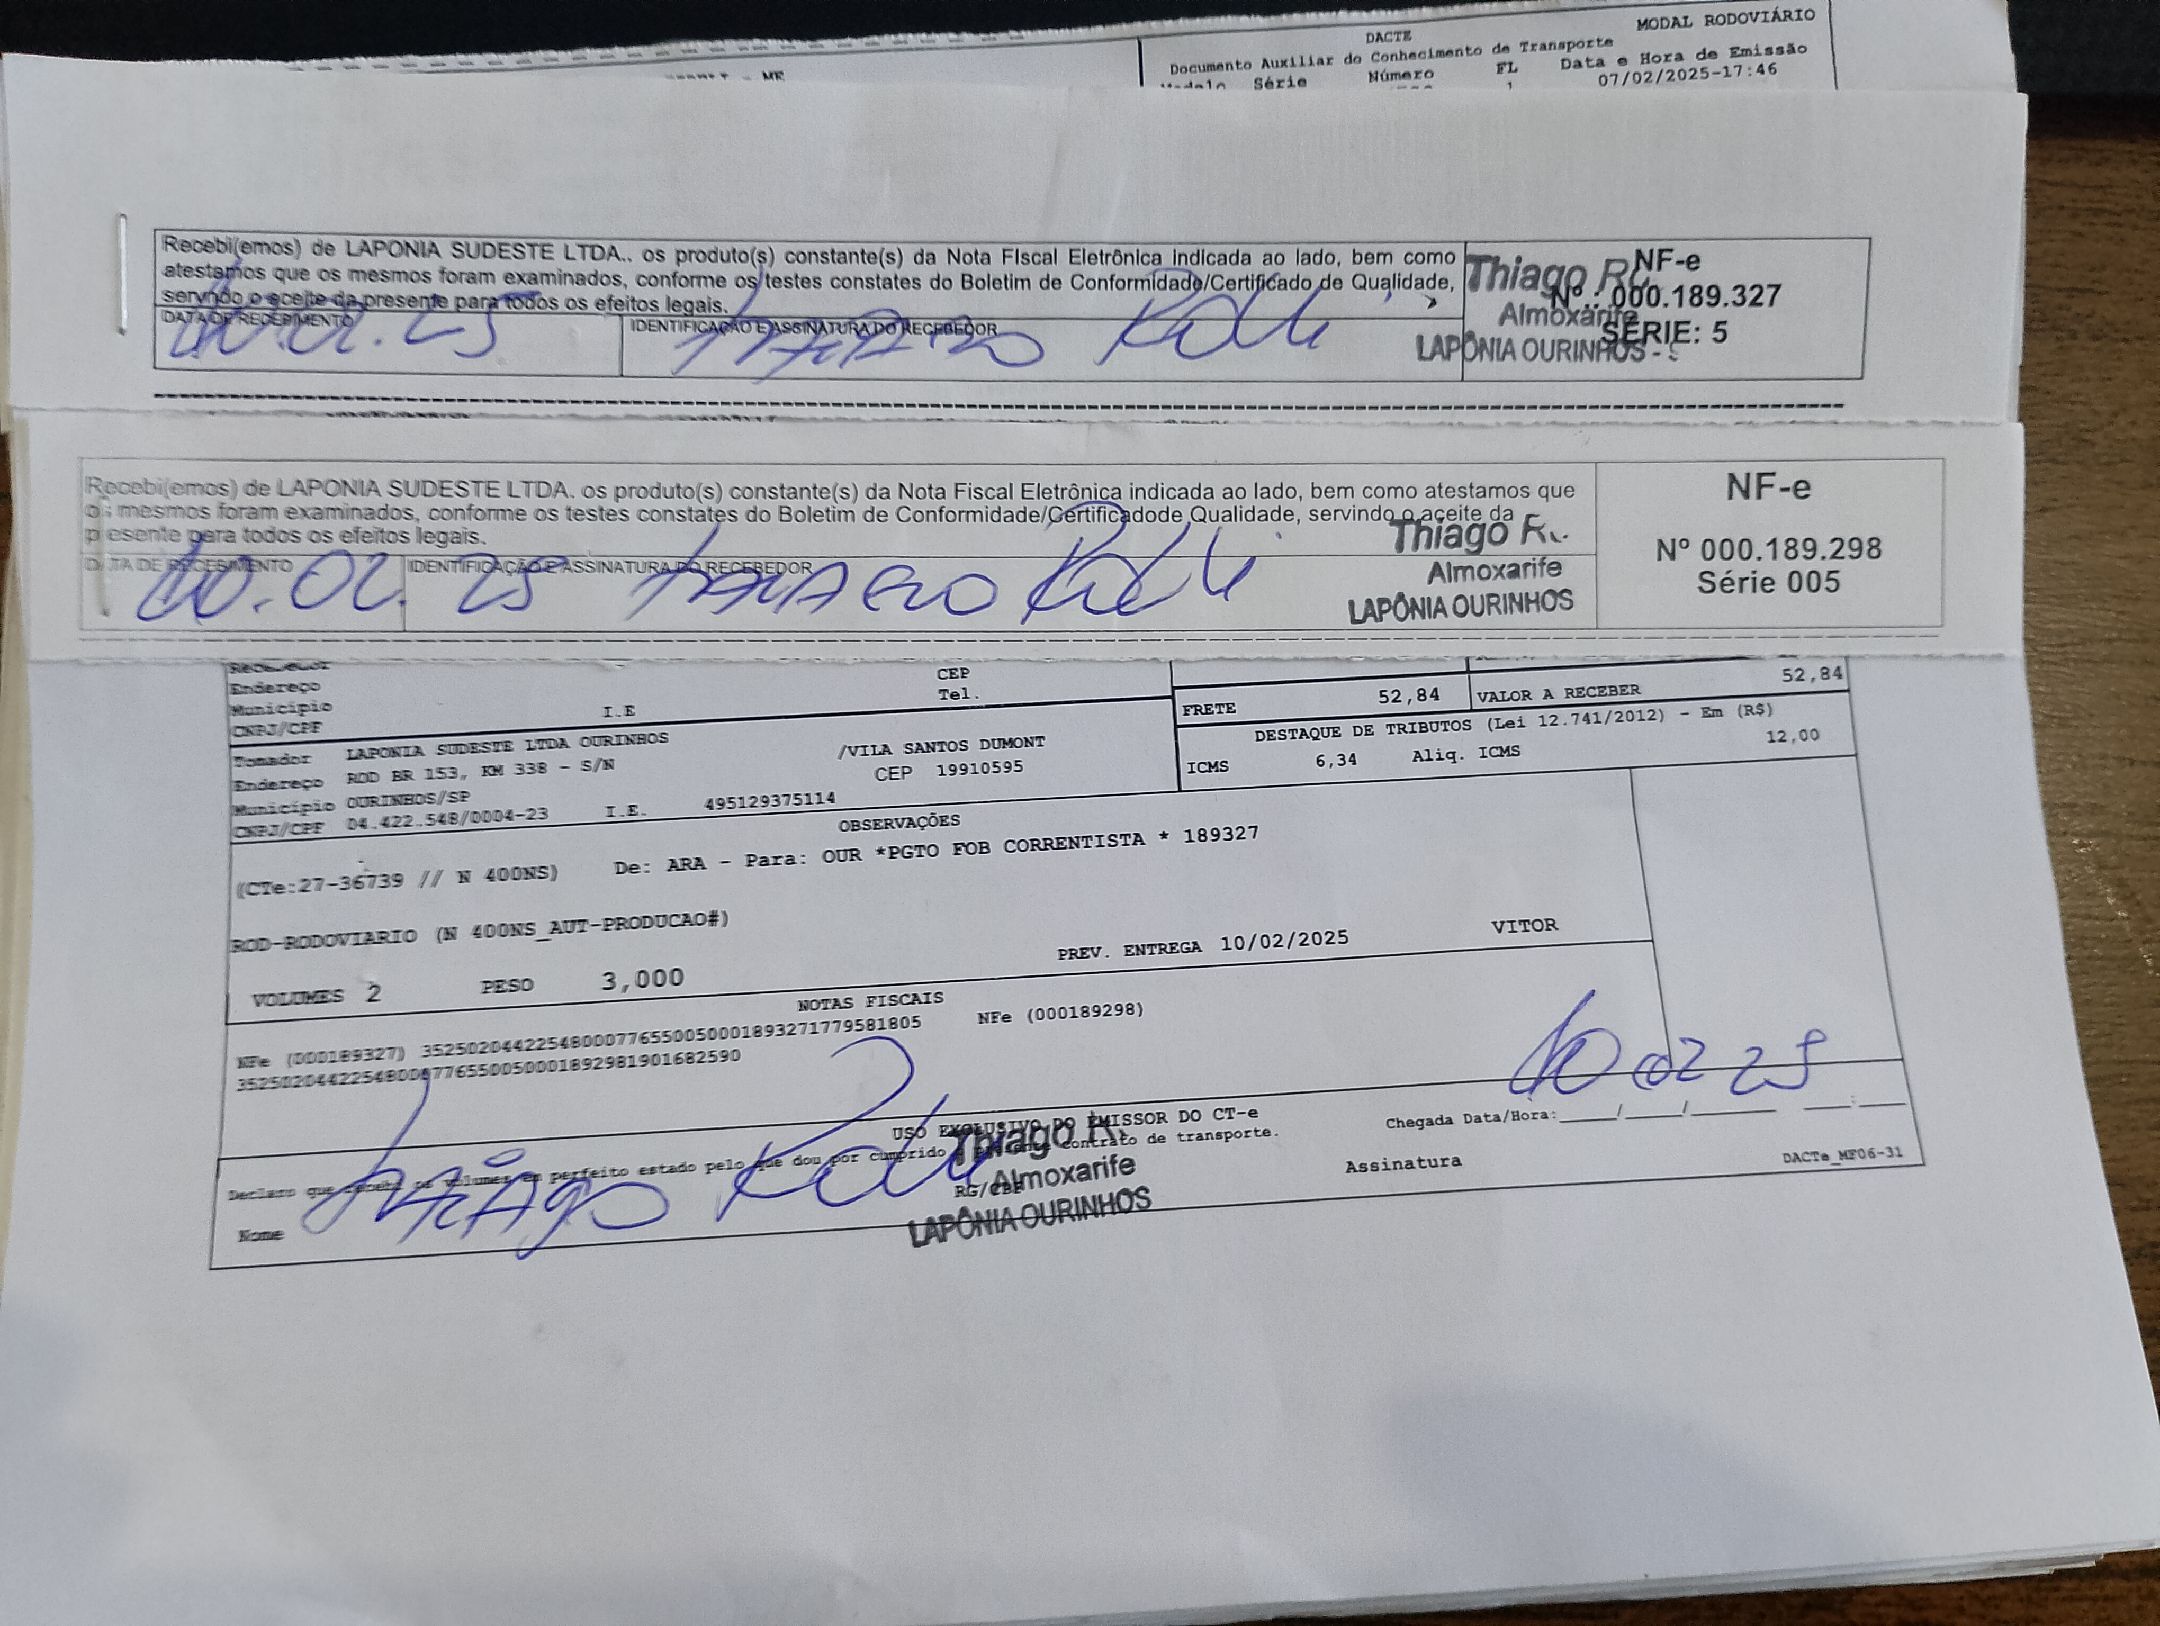 MODAL RODOVIÁRIO
DACTE
Documento Auxiliar do Conhecimento de Transporte
Série Número FL Data e Hora de Emissão
07/02/2025-17:46
Recebi(emos) de LAPONIA SUDESTE LTDA., os produto(s) constante(s) da Nota Fiscal Eletrônica indicada ao lado, bem como
atestamos que os mesmos foram examinados, conforme os testes constates do Boletim de Conformidade/Certificado de Qualidade,
servindo o aceite da presente para todos os efeitos legais.
DATA DE RECEBIMENTO
IDENTIFICAÇÃO E ASSINATURA DO RECEBEDOR
10.02.25
NF-e
Nº : 000.189.327
SÉRIE: 5
Thiago R
Almoxarife
LAPÔNIA OURINHOS -
Recebi(emos) de LAPONIA SUDESTE LTDA. os produto(s) constante(s) da Nota Fiscal Eletrônica indicada ao lado, bem como atestamos que
os mesmos foram examinados, conforme os testes constates do Boletim de Conformidade/Certificadode Qualidade, servindo o aceite da
presente para todos os efeitos legais.
DATA DE RECEBIMENTO
IDENTIFICAÇÃO E ASSINATURA DO RECEBEDOR
10.02.25
Thiago R.
Almoxarife
LAPÔNIA OURINHOS
NF-e
Nº 000.189.298
Série 005
Endereço CEP
Município Tel.
CNPJ/CPF I.E
FRETE 52,84 VALOR A RECEBER 52,84
DESTAQUE DE TRIBUTOS (Lei 12.741/2012) - Em (R$)
ICMS 6,34 Aliq. ICMS 12,00
Tomador LAPONIA SUDESTE LTDA OURINHOS
Endereço ROD BR 153, KM 338 - S/N /VILA SANTOS DUMONT
Município OURINHOS/SP CEP 19910595
CNPJ/CPF 04.422.548/0004-23 I.E. 495129375114
OBSERVAÇÕES
(CTe:27-36739 // N 400NS) De: ARA - Para: OUR *PGTO FOB CORRENTISTA * 189327
ROD-RODOVIARIO (N 400NS_AUT-PRODUCAO#)
PREV. ENTREGA 10/02/2025 VITOR
VOLUMES 2 PESO 3,000
NOTAS FISCAIS
NFe (000189327) 35250204422548000776550050001893271779581805 NFe (000189298)
35250204422548000776550050001892981901682590
10 02 25
USO EXCLUSIVO DO EMISSOR DO CT-e
Chegada Data/Hora:____/____/______ ___:___
Declaro que recebi os volumes em perfeito estado pelo que dou por cumprido o presente contrato de transporte.
Nome
Thiago
RG/CPF
Assinatura
DACTe_MF06-31
Thiago R.
Almoxarife
LAPÔNIA OURINHOS